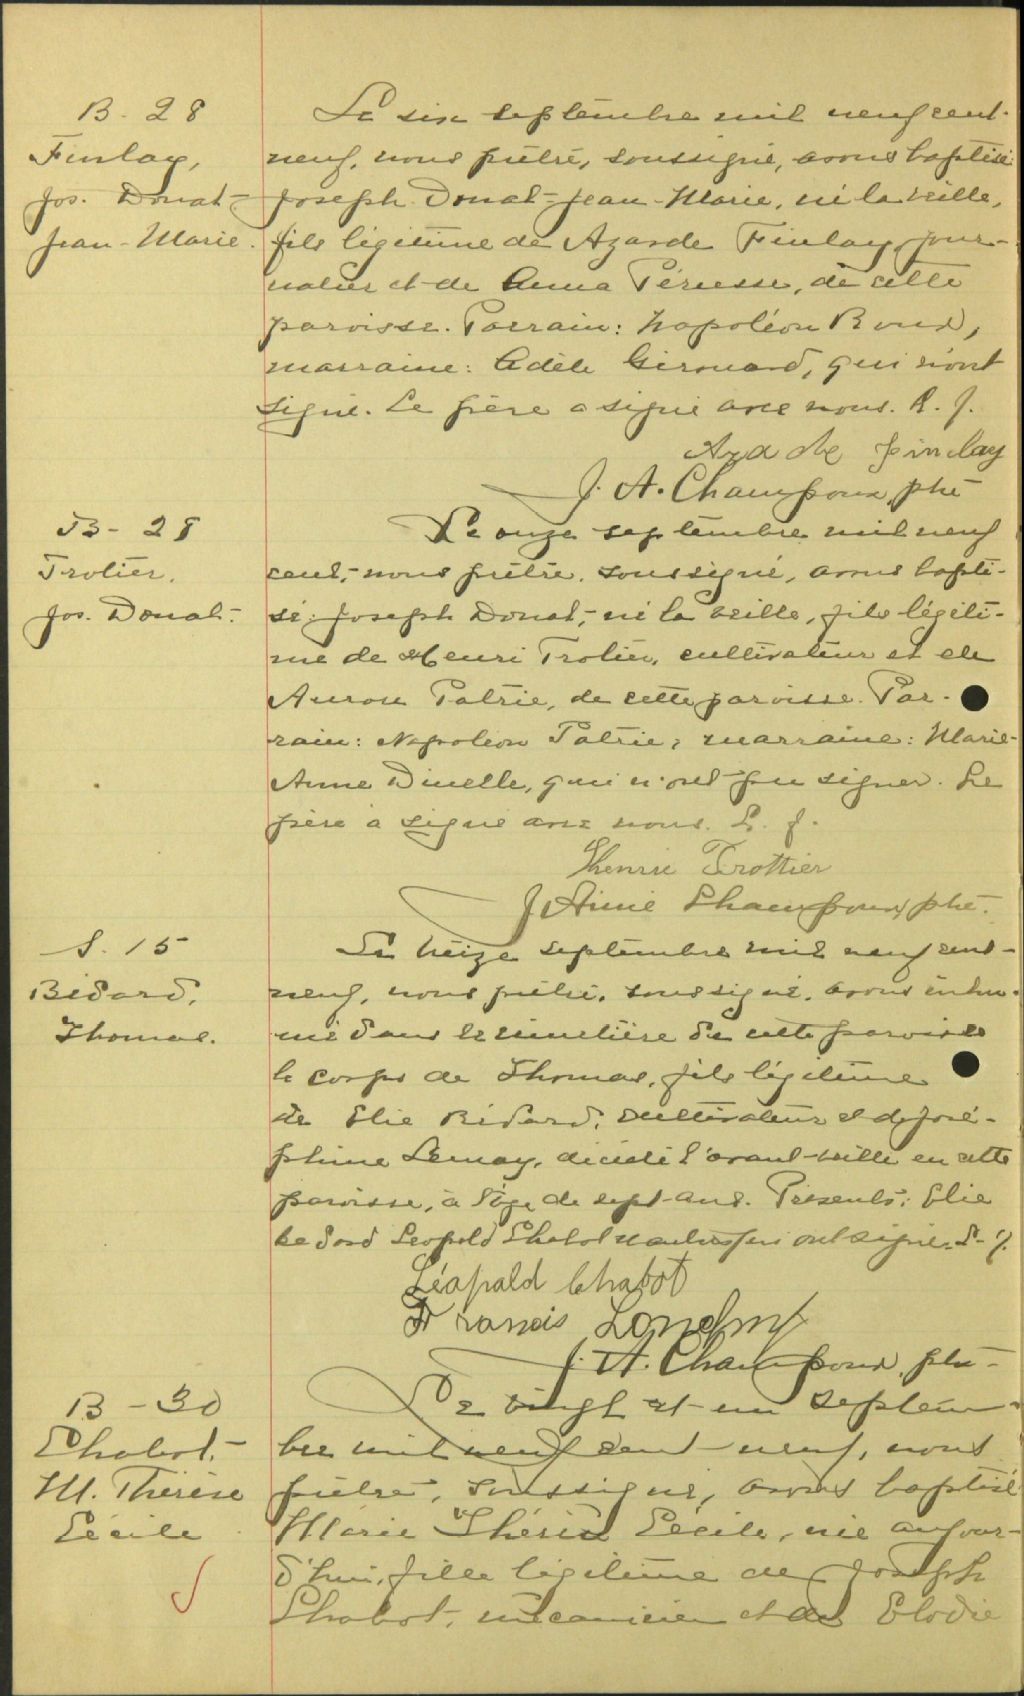 B. 28
Finlay,
Jos. Donat-
Jean-Marie.
Le six septembre mil neuf cent-
neuf, nous prêtre, soussigné, avons baptisé
Joseph Donat-Jean-Marie, né la veille,
fils légitime de Azarde Finlay, jour-
nalier et de Anna Pérusse, de cette
paroisse. Parrain: Napoléon Roux,
marraine: Adèle Girouard, qui n'ont
signé. Le père a signé avec nous. L. f.
Azade finlay
J. A. Champoux, ptre
B- 29
Trotier,
Jos. Donat-
Le onze septembre mil neuf
cent,- nous prêtre, soussigné, avons bapti-
sé: Joseph Donat,- né la veille, fils légiti-
me de Henri Trotier, cultivateur et de
Aurore Patrie, de cette paroisse. Par-
rain: Napoléon Patrie, marraine: Marie-
Anne Dinelle, qui n'ont pu signer. Le
père a signé avec nous. L. f.
Henrie Trottier
J Aimé Champoux, ptre.
S. 15
Bédard,
Thomas.
Le treize septembre mil neuf cent-
neuf, nous prêtre, soussigné, avons inhu-
mé dans le cimetière de cette paroisse
le corps de Thomas, fils légitime
de Elie Bédard, cultivateur et de José-
phine Lemay, décédé l'avant-veille en cette
paroisse, à l'âge de sept ans. Présents: Elie
Bedard Leopold Chabot qui ont signé. L. f.
Léopald Chabot
Francis
J. A. Champoux, ptre-
B-30
Chabot,-
M. Thérèse
Cécile
Le vingt et un septem-
bre mil neuf cent-neuf, nous
prêtre, soussigné, avons baptisé
Marie Thérèse Cécile, née aujour-
d'hui, fille légitime de Joseph
Chabot, mécanicien et de Elodie